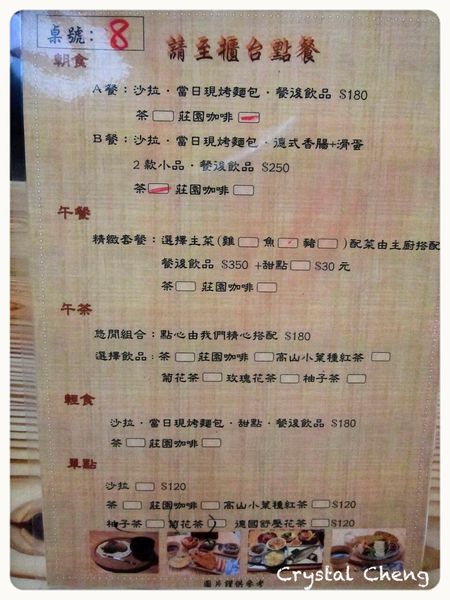 桌號: 8
請至櫃台點餐
朝食
A餐：沙拉．當日現烤麵包．餐後飲品 $180
茶 莊園咖啡
B餐：沙拉．當日現烤麵包．德式香腸+滑蛋
2款小品．餐後飲品 $250
茶 莊園咖啡
午餐
精緻套餐：選擇主菜(雞 魚 豬 )配菜由主廚搭配
餐後飲品 $350 +甜點 $30元
茶 莊園咖啡
午茶
悠閒組合：點心由我們精心搭配 $180
選擇飲品：茶 莊園咖啡 高山小葉種紅茶
菊花茶 玫瑰花茶 柚子茶
輕食
沙拉．當日現烤麵包．甜點．餐後飲品 $180
茶 莊園咖啡
單點
沙拉 $120
茶 莊園咖啡 高山小葉種紅茶 $120
柚子茶 菊花茶 德國舒壓花茶 $120
圖片謹供參考
Crystal Cheng